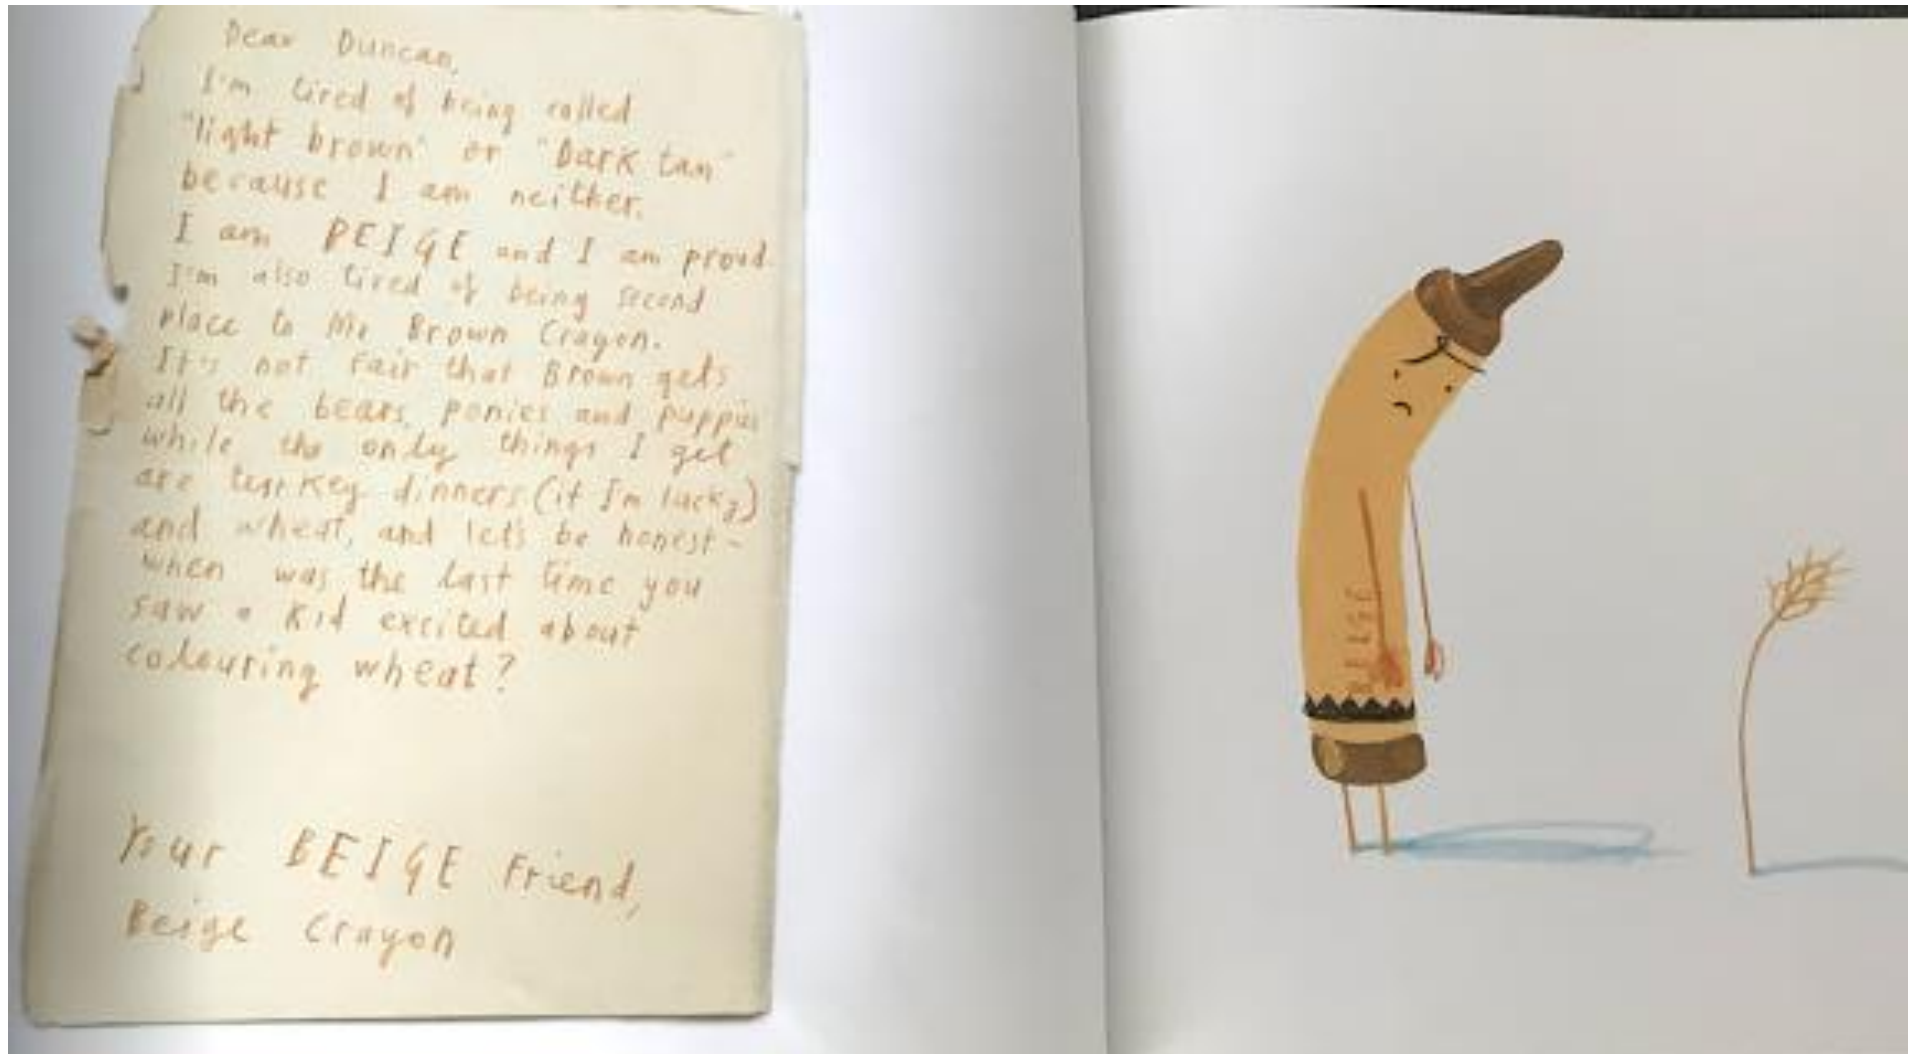 Dear Duncan,
I'm tired of being called
"light brown" or "Dark tan"
because I am neither.
I am BEIGE and I am proud.
I'm also tired of being second
place to Mr Brown Crayon.
It's not fair that Brown gets
all the bears, ponies and puppies
while the only things I get
are turkey dinners (if I'm lucky)
and wheat, and let's be honest –
when was the last time you
saw a kid excited about
colouring wheat?
Your BEIGE friend,
Beige Crayon
BEIGE